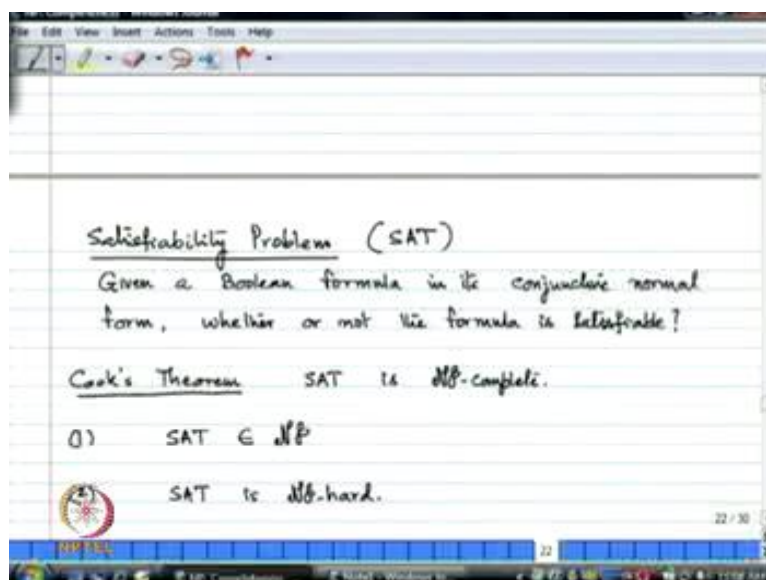 File Edit View Insert Actions Tools Help
Satisfiability Problem (SAT)
Given a Boolean formula in its conjunctive normal
form, whether or not the formula is satisfiable?
Cook's Theorem SAT is NP-complete.
(1) SAT ∈ NP
(2) SAT is NP-hard.
22 / 30
NPTEL
22